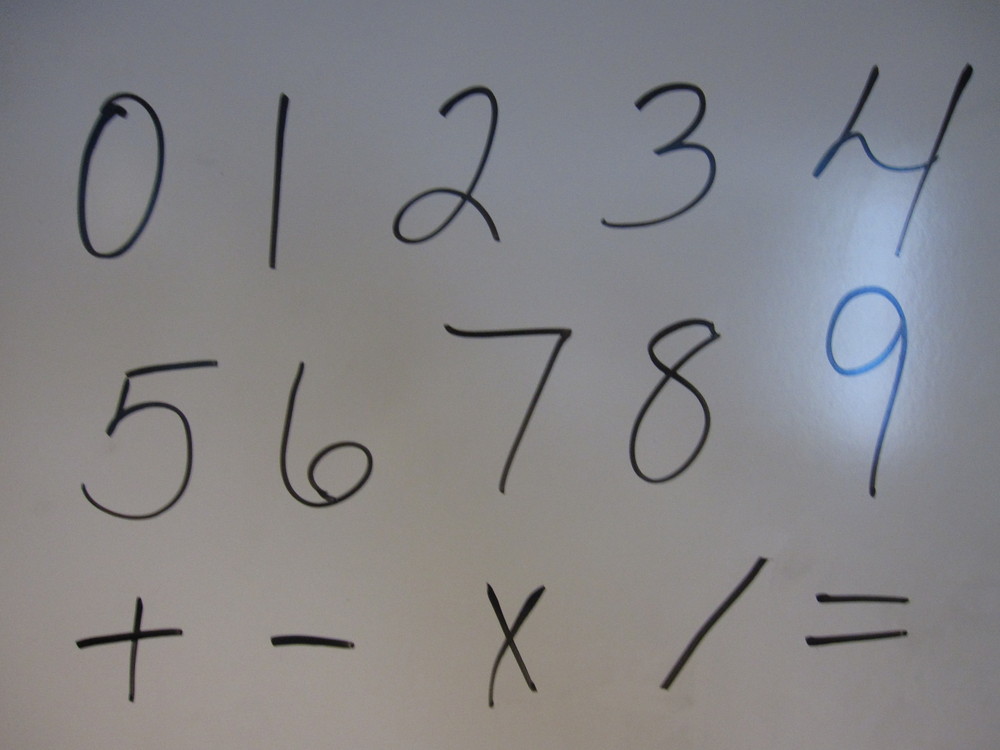 0 1 2 3 4
5 6 7 8 9
+ - x / =